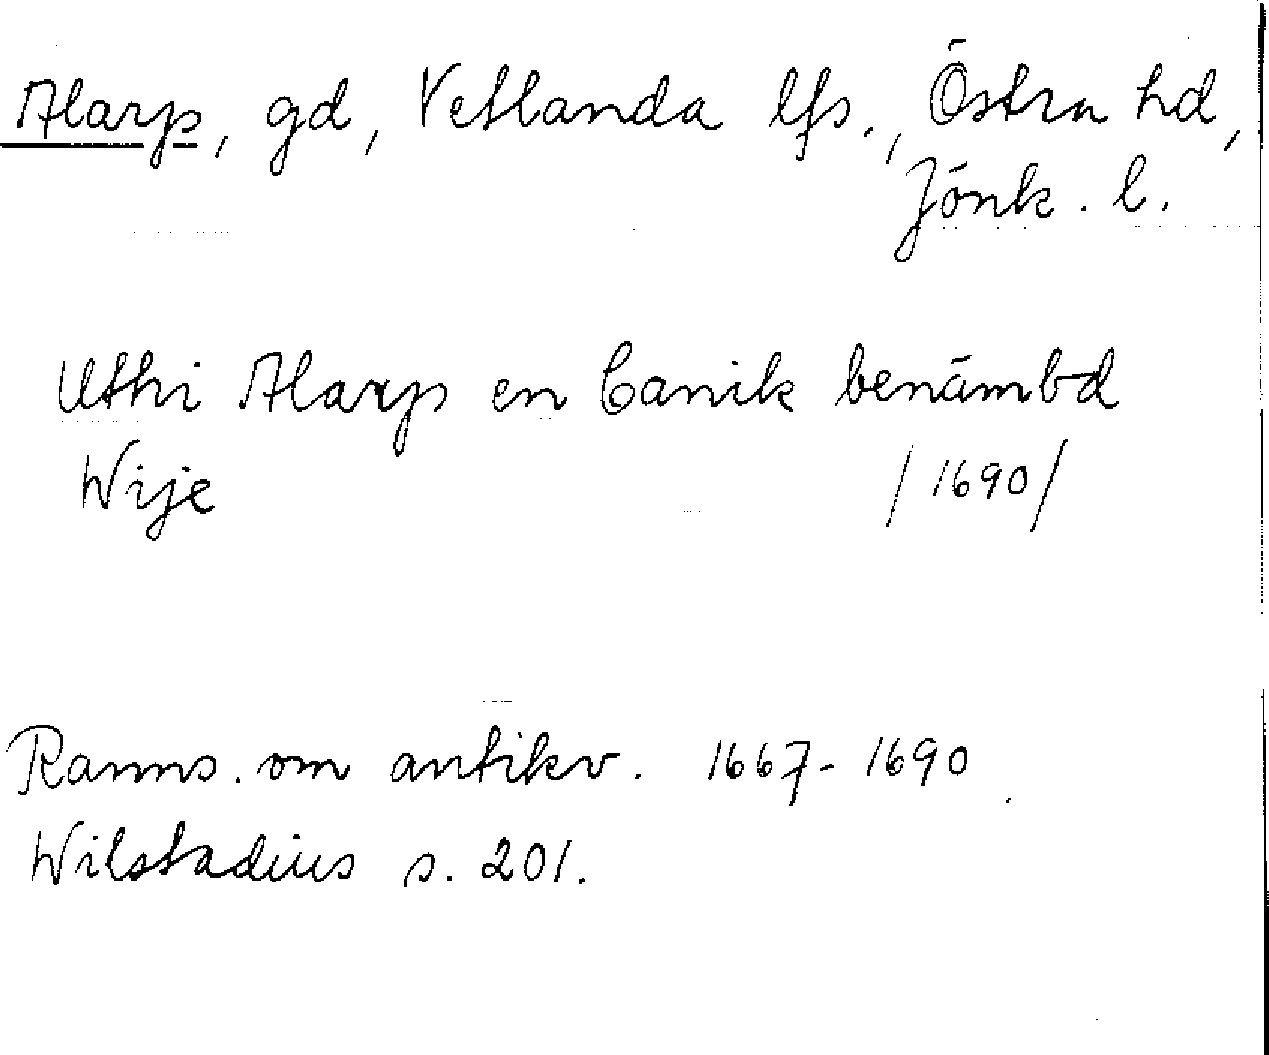 Alarp, gd, Vetlanda lfs., Östra hd,
Jönk. l.
Uthi Alarp en Canik benämbd
Wije /1690/
Ranns. om antikv. 1667-1690.
Wilstadius s. 201.